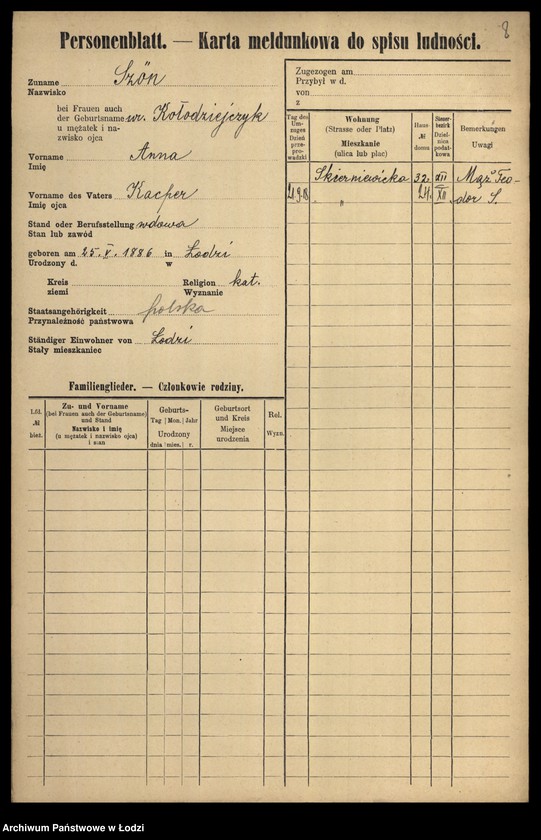 8
Personenblatt. — Karta meldunkowa do spisu ludności.
Zuname Szön
Nazwisko
bei Frauen auch
der Geburtsname ur. Kołodziejczyk
u mężatek i na-
zwisko ojca
Vorname Anna
Imię
Vorname des Vaters Kacper
Imię ojca
Stand oder Berufsstellung wdowa
Stan lub zawód
geboren am 25. V. 1886 in Łodzi
Urodzony d. w
Kreis Religion kat.
ziemi Wyznanie
Staatsangehörigkeit polska
Przynależność państwowa
Ständiger Einwohner von Łodzi
Stały mieszkaniec
Familienglieder. — Członkowie rodziny.
Lfd. № bież.
Zu- und Vorname
(bei Frauen auch der Geburtsname)
und Stand
Nazwisko i imię
(u mężatek i nazwisko ojca)
i stan
Geburts-
Tag Mon. Jahr
Urodzony
dnia mies. r.
Geburtsort
und Kreis
Miejsce
urodzenia
Rel.
Wyzn.
Zugezogen am
Przybył w d.
von
z
Tag des
Um-
zuges
Dzień
prze-
pro-
wadzki
Wohnung
(Strasse oder Platz)
Mieszkanie
(ulica lub plac)
Haus-
№
domu
Steuer-
bezirk
Dziel-
nica
podat-
kowa
Bemerkungen
Uwagi
Skierniewicka 32. XII Mąż Teo-
21.9.18 " 24. XII dor S.
Archiwum Państwowe w Łodzi